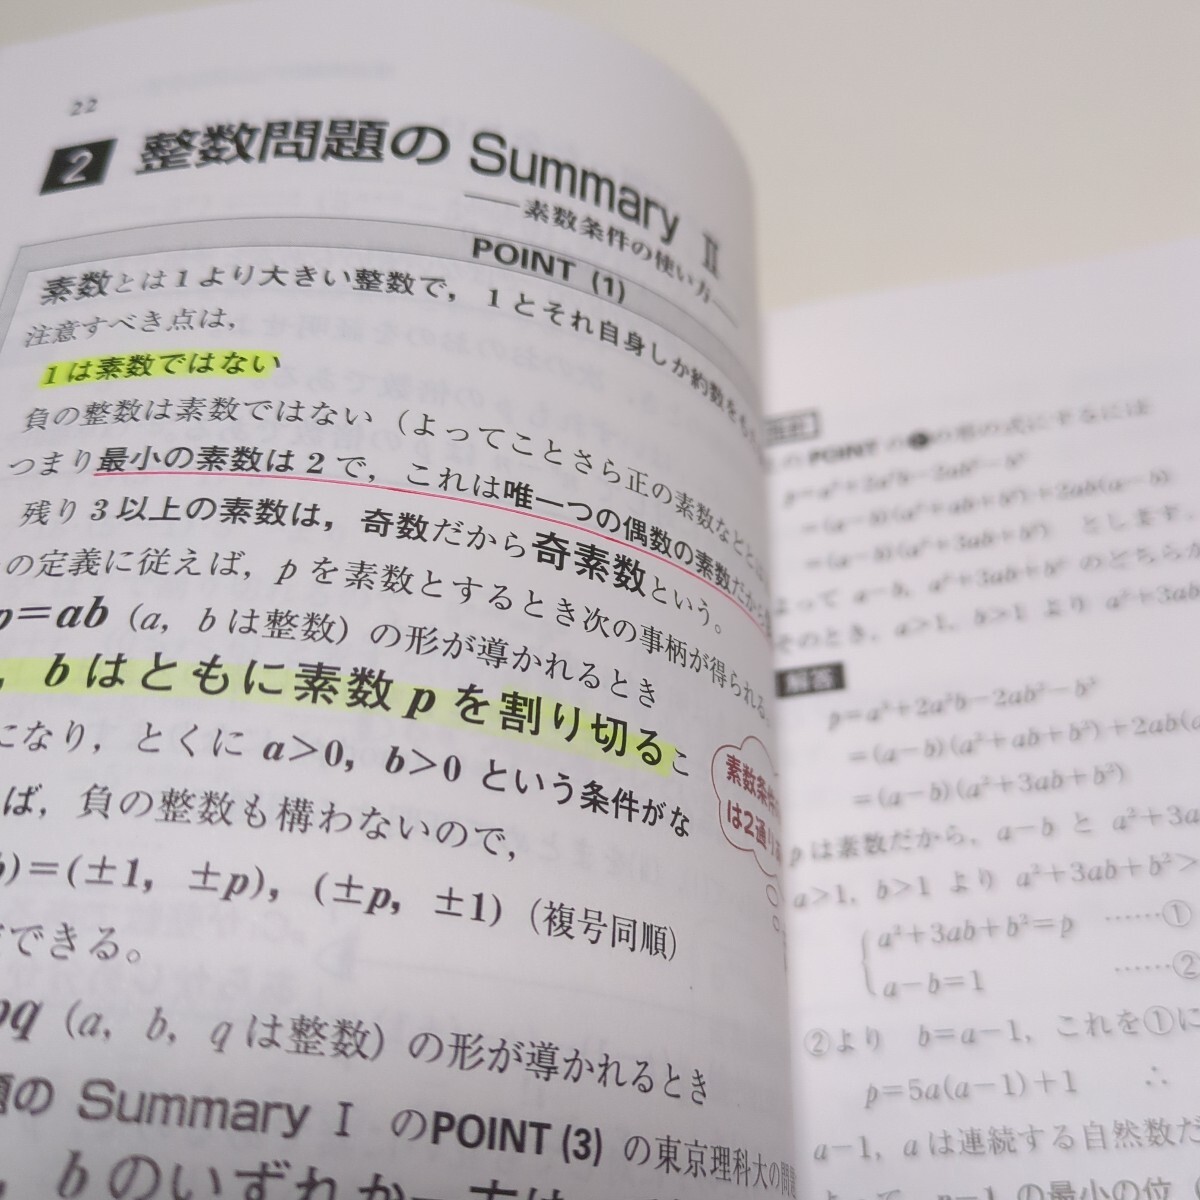 22
2 整数問題の Summary Ⅱ
――素数条件の使い方――
POINT (1)
素数とは1より大きい整数で，1とそれ自身しか約数をも
注意すべき点は，
1は素数ではない
負の整数は素数ではない（よってことさら正の素数などとは
つまり最小の素数は2で，これは唯一つの偶数の素数だから
残り3以上の素数は，奇数だから奇素数という。
の定義に従えば，pを素数とするとき次の事柄が得られる
p=ab (a, bは整数) の形が導かれるとき
, bはともに素数pを割り切るこ
になり，とくに a>0, b>0 という条件がな
ば，負の整数も構わないので，
b)=(±1, ±p), (±p, ±1) (複号同順)
できる。
素数条件
は2通り
pq (a, b, qは整数) の形が導かれるとき
題の Summary Ⅰ のPOINT (3) の東京理科大の問題
, bのいずれか一方は
のPOINTの の形の式にするには
p=a²+2a²b−2ab²−b³
=(a−b)(a²+ab+b²)+2ab(a−b)
=(a−b)(a²+3ab+b²) とします。
よって a−b, a²+3ab+b² のどちらか
そのとき，a>1, b>1 より a²+3ab
解答
p=a³+2a²b−2ab²−b³
=(a−b)(a²+ab+b²)+2ab(a
=(a−b)(a²+3ab+b²)
pは素数だから，a−b と a²+3a
a>1, b>1 より a²+3ab+b²>
a²+3ab+b²=p ……①
a−b=1 ……②
②より b=a−1, これを①に
p=5a(a−1)+1 ∴
a−1, aは連続する自然数だ
よって p−1 の最小の位